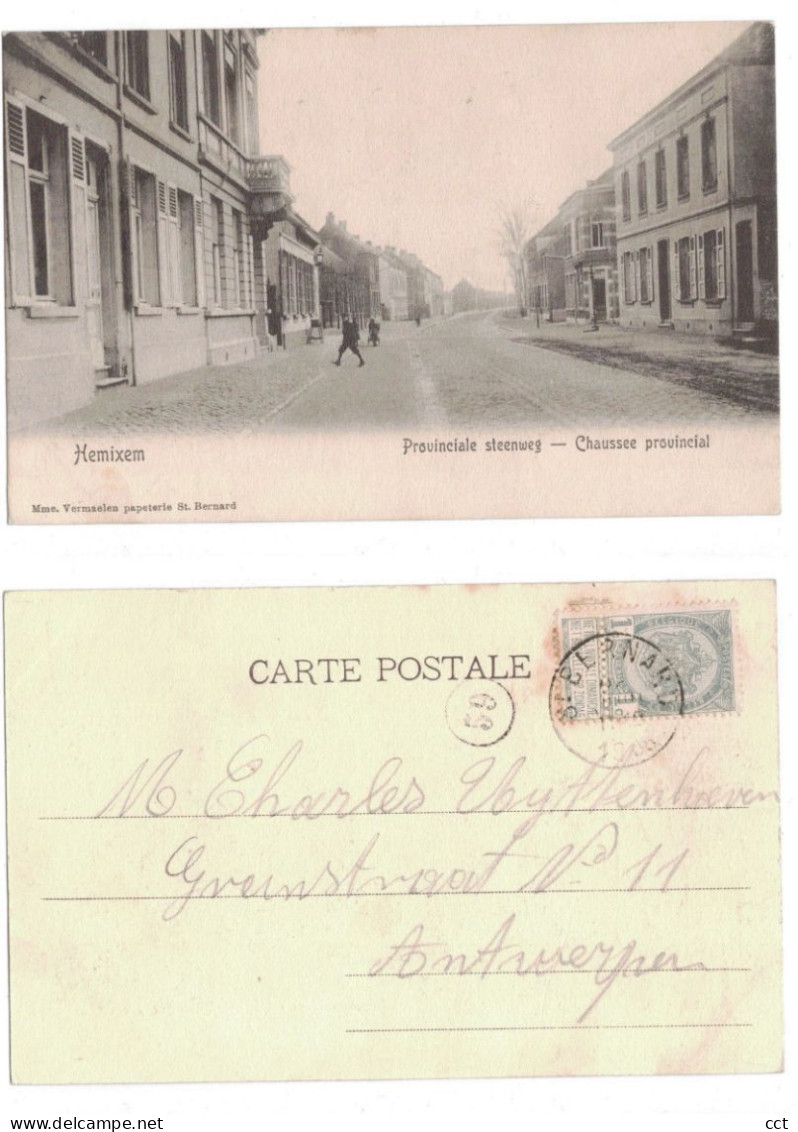 Hemixem
Provinciale steenweg — Chaussee provincial
Mme. Vermaelen papeterie St. Bernard
CARTE POSTALE
59
BELGIQUE
ST BERNARD
M Charles Uyttenhoeven
Greinstraat Nº 11
Antwerpen
www.delcampe.net
cct